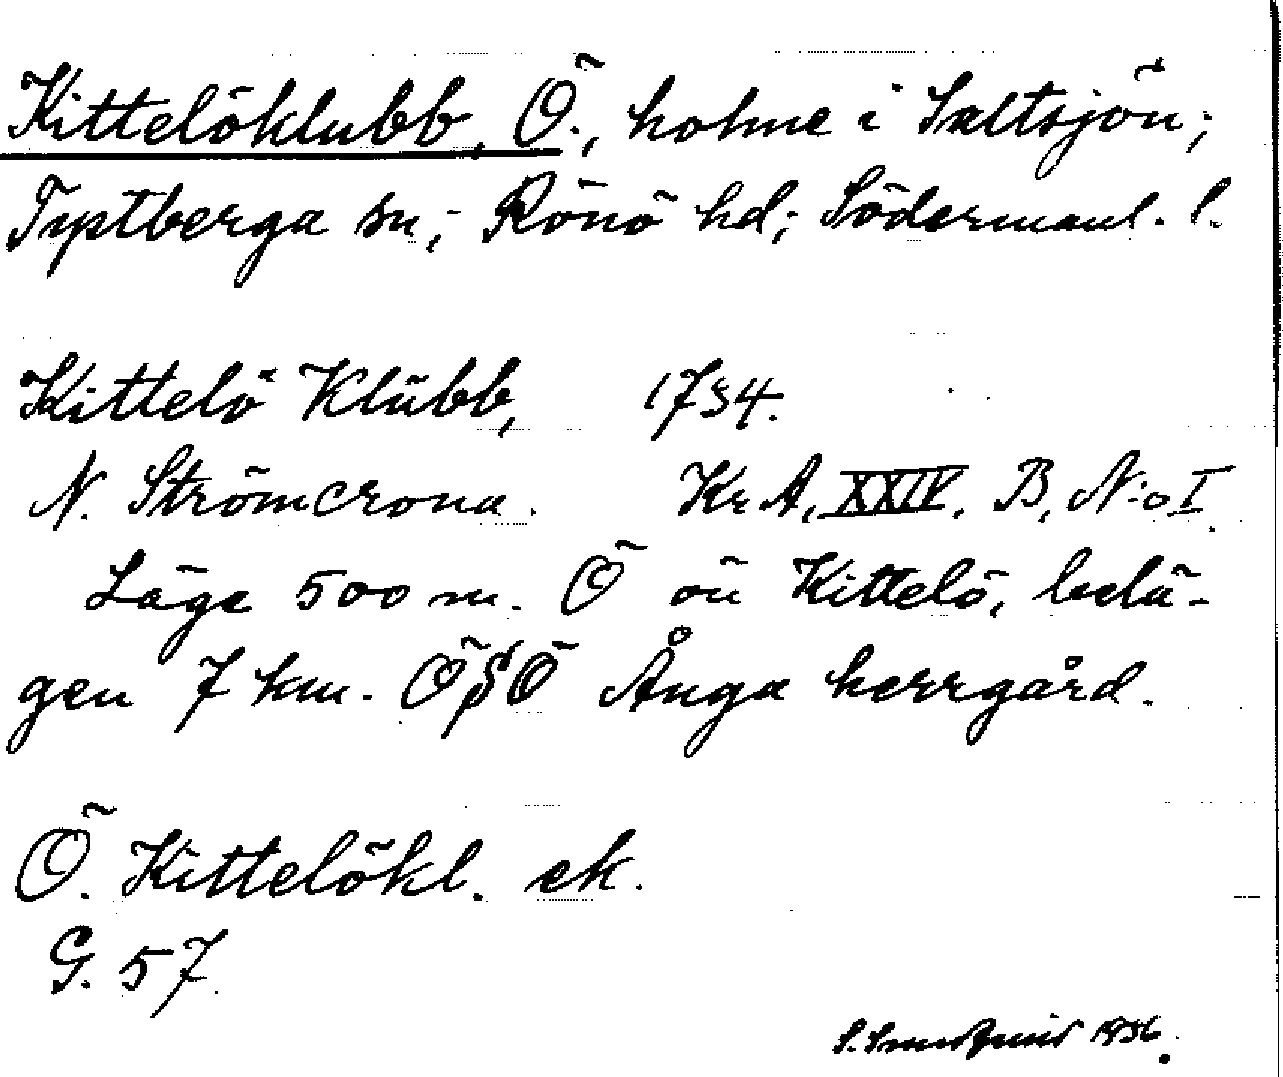 Kittelöklubb, Ö., holme i Saltsjön;
Tystberga sn; Rönö hd; Södermanl. l.
Kittelö Klubb, 1734.
N. Strömcrona. Kr A, XXIV. B, N:o I.
Läge 500 m. Ö om Kittelö, belä-
gen 7 km. ÖSÖ Ånga herrgård.
Ö. Kittelökl. ek.
G. 57.
1936.